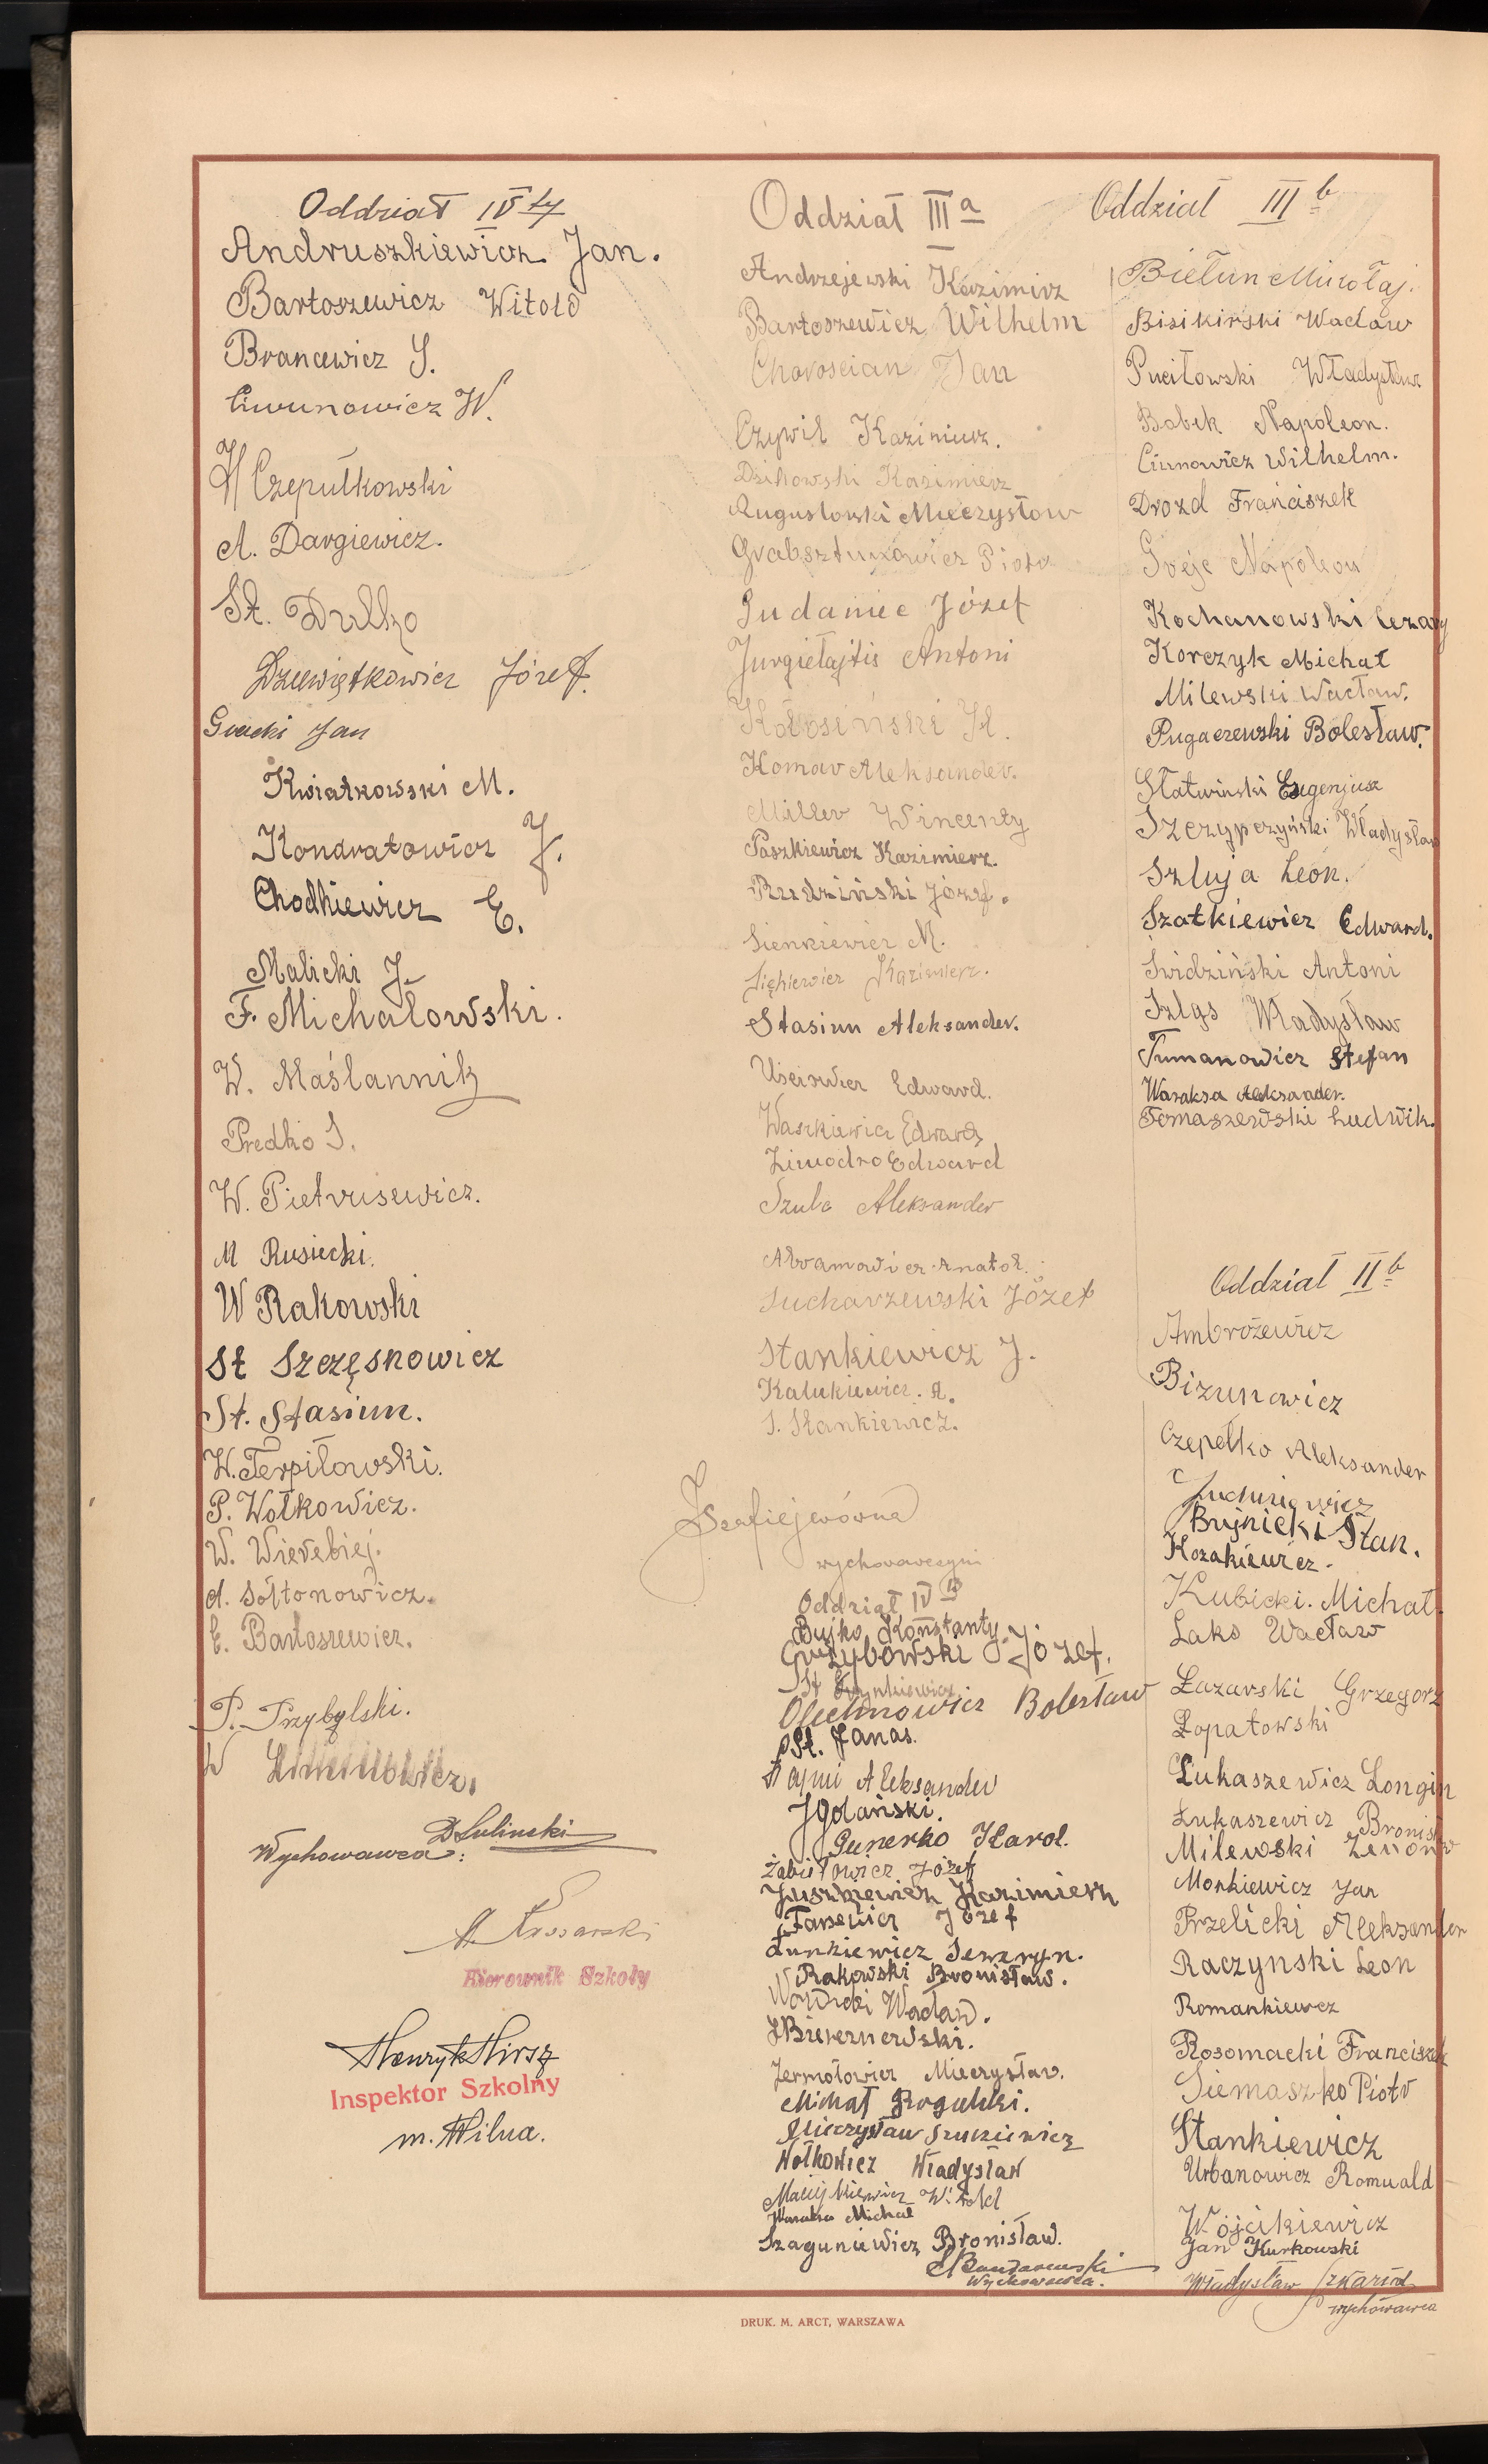 Oddział IV
Andruszkiewicz Jan.
Bartoszewicz Witold
Brancewicz S.
Ciwunowicz W.
Czepułkowski
A. Dargiewicz.
St. Dulko
Dziewiętkowicz Józef.
Jan
Kwiatkowski M.
Kondratowicz J.
Chodkiewicz E.
Malicki J.
F. Michałowski.
W. Maślannik
Predko S.
W. Pietrusewicz.
M Rusiecki.
W Rakowski
St Szczęsnowicz
St. Stasiun.
W. Terpiłowski.
P. Wołkowicz.
W. Wierebiej.
A. Sołtonowicz.
E. Bartoszewicz.
P. Przybylski.
W
Wychowawca:
Kierownik Szkoły
Henryk Hirsz
Inspektor Szkolny
m. Wilna.
Oddział III a
Andrzejewski Kazimirz
Bartoszewicz Wilhelm
Choroscian Jan
Czywil Kazimierz.
Kazimierz
Augustowski Mieczysław
Piotr
Gudaniec Józef
Jurgiełajtis Antoni
Komar Aleksander.
Miller Wincenty
Paszkiewicz Kazimierz.
Rudziński Józef.
Sienkiewicz M.
Kazimierz.
Stasiun Aleksander.
Edward.
Waszkiewicz Edward
Zimodro Edward
Szulc Aleksander
Abramowicz Anatol.
Sucharzewski Józef
Stankiewicz J.
Kalukiewicz. A.
S. Stankiewicz.
wychowawczyni
Oddział IV b
Bujko Konstanty
Grzybowski Józef.
St
Olechnowicz Bolesław
St. Janas.
Aleksander
J Golański.
Karol.
Żabiełowicz Józef
Juszkiewicz Kazimierz
Tarsewicz Józef
Łunkiewicz Seweryn.
Rakowski Bronisław.
Wacław.
Jermołowicz Mieczysław.
Michał Rogulski.
Mieczysław Szuszkiewicz
Wołkowicz Władysław
Witold
Waraksa Michał
Szaguniewicz Bronisław.
Wychowawca.
Oddział III b
Biełun Mikołaj.
Bisikirski Wacław
Puciłowski Władysław
Bobek Napoleon.
Ciunowicz Wilhelm.
Drozd Franciszek
Napoleon
Kochanowski Cezary
Korczyk Michał
Milewski Wacław.
Pugaczewski Bolesław.
Słatwiński Eugenjusz
Szczypczyński Władysław
Szluja Leon.
Szatkiewicz Edward.
Świdziński Antoni
Szlgs Władysław
Tumanowicz Stefan
Waraksa Aleksander.
Tomaszewski Ludwik.
Oddział II b
Ambrożewicz
Bizunowicz
Czepełko Aleksander
Juchniewicz
Bujnicki Stan.
Kozakiewicz.
Kubicki. Michał.
Lako Wacław
Łazarski Grzegorz
Łopatowski
Łukaszewicz Longin
Łukaszewicz Bronisł
Milewski Zenon
Monkiewicz Jan
Przelicki Aleksander
Raczynski Leon
Romankiewcz
Rosomacki Franciszek
Siemaszko Piotr
Stankiewicz
Urbanowicz Romuald
Wojcikiewicz
Jan Kurkowski
Władysław
wychowawca
DRUK. M. ARCT, WARSZAWA